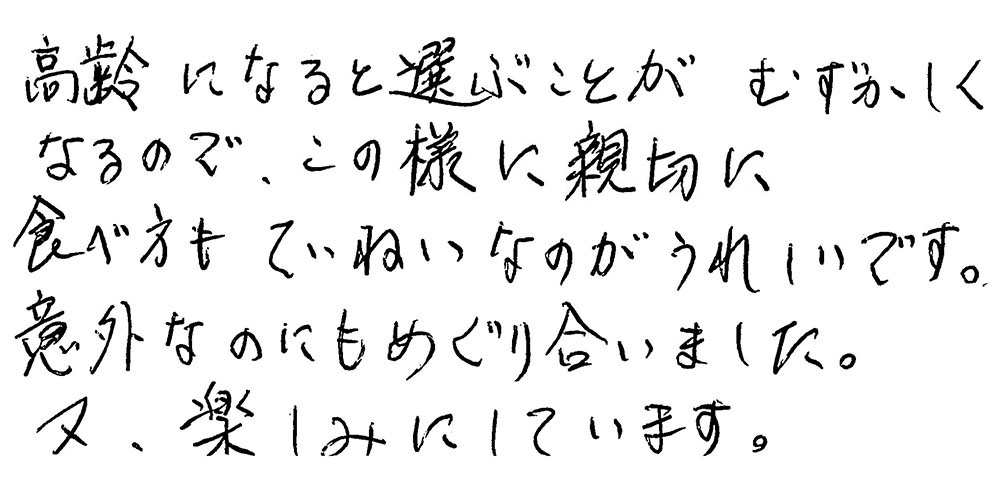 高齢になると選ぶことが むずかしく
なるので、この様に親切に
食べ方も ていねいなのがうれしいです。
意外なのにもめぐり合いました。
又、楽しみにしています。